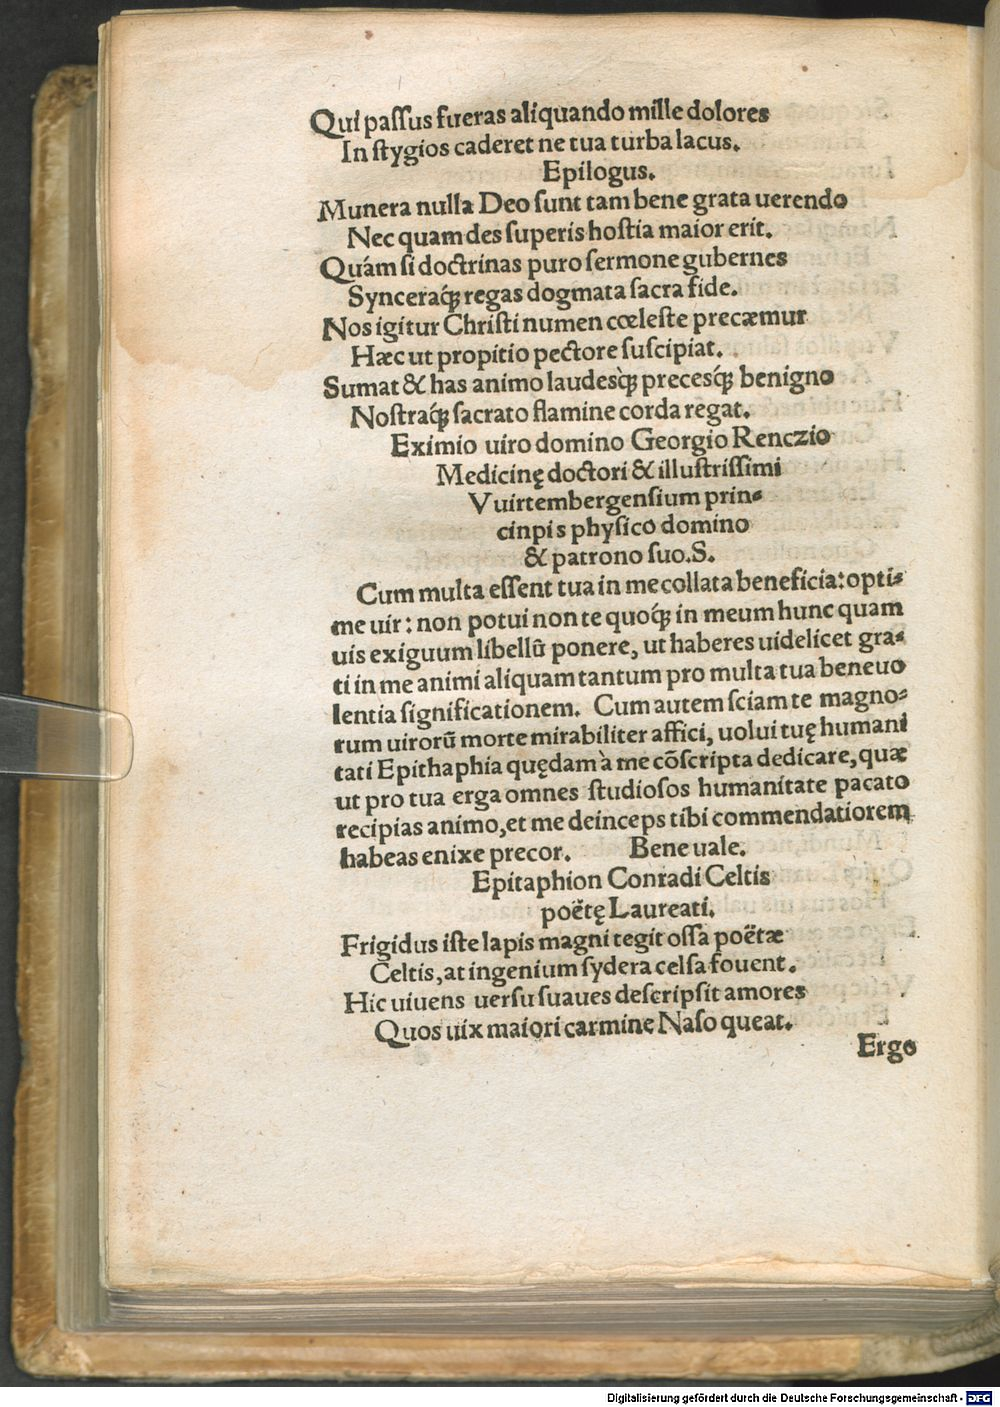 Qui paſſus fueras aliquando mille dolores
In ſtygios caderet ne tua turba lacus.
Epilogus.
Munera nulla Deo ſunt tam bene grata uerendo
Nec quam des ſuperis hoſtia maior erit.
Quám ſi doctrinas puro ſermone gubernes
Synceraq́ꝫ regas dogmata ſacra fide.
Nos igitur Chriſti numen cœleſte precæmur
Hæc ut propitio pectore ſuſcipiat.
Sumat & has animo laudesq̀ꝫ precesq́ꝫ benigno
Noſtraq́ꝫ ſacrato flamine corda regat.
Eximio uiro domino Georgio Renczio
Medicinę doctori & illuſtriſſimi
Vuirtembergenſium prin⸗
cinpis phyſico domino
& patrono ſuo.S.
Cum multa eſſent tua in me collata beneficia: opti⸗
me uir: non potui non te quoq́ꝫ in meum hunc quam
uis exiguum libellũ ponere, ut haberes uidelicet gra⸗
ti in me animi aliquam tantum pro multa tua beneuo
lentia ſignificationem. Cum autem ſciam te magno⸗
rum uirorũ morte mirabiliter affici, uolui tuę humani
tati Epithaphia quędam à me cõſcripta dedicare, quæ
ut pro tua erga omnes ſtudioſos humanitate pacato
recipias animo, et me deinceps tibi commendatiorem
habeas enixe precor. Bene uale.
Epitaphion Conradi Celtis
poëtę Laureati.
Frigidus iſte lapis magni tegit oſſa poëtæ
Celtis, at ingenium ſydera celſa fouent.
Hic uiuens uerſu ſuaues deſcripſit amores
Quos uix maiori carmine Naſo queat.
Ergo
Digitalisierung gefördert durch die Deutsche Forschungsgemeinschaft - DFG